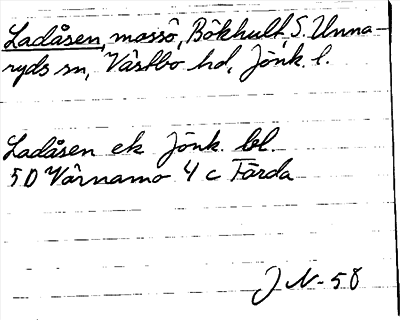 Ladåsen, mosse, Bökhult, S. Unna-
ryds sn, Västbo hd, Jönk. l.
Ladåsen ek Jönk. bl.
5D Värnamo 4 c Färda
J N-58